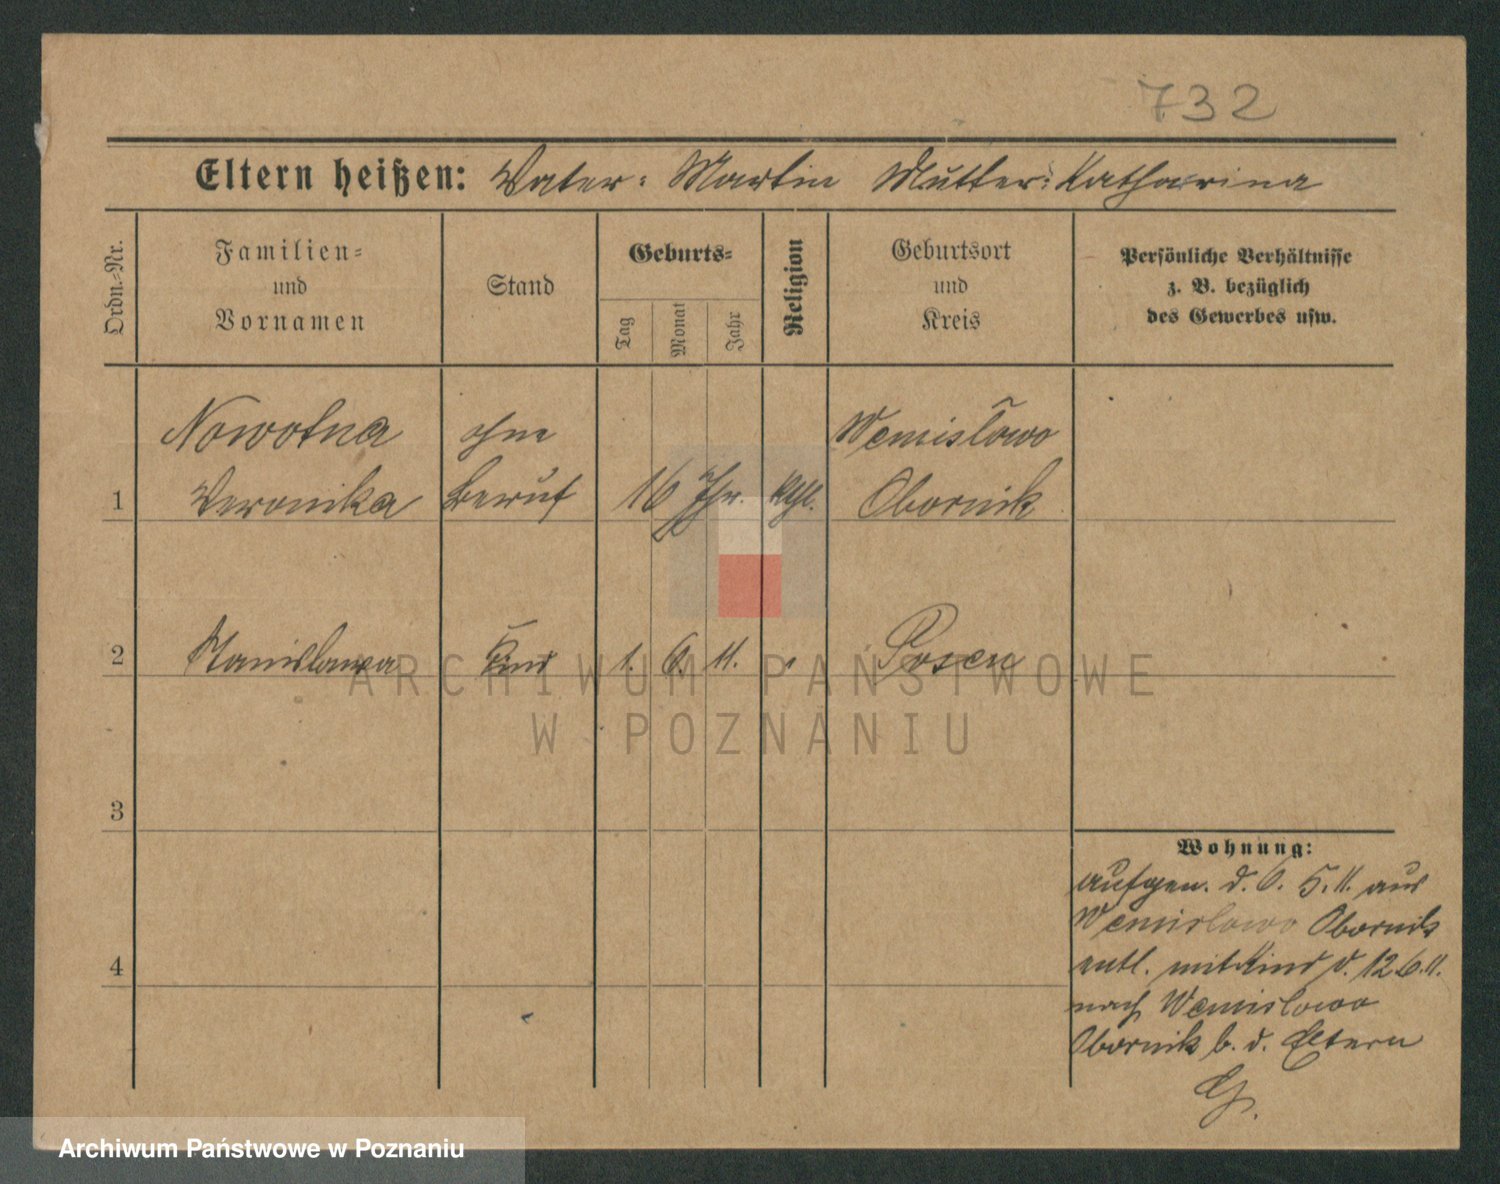 732
Eltern heißen: Vater: Martin Mutter: Katharina
Ordn.-Nr.
Familien-
und
Vornamen
Stand
Geburts-
Tag
Monat
Jahr
Religion
Geburtsort
und
Kreis
Persönliche Verhältnisse
z. B. bezüglich
des Gewerbes usw.
Nowotna ohne
1 Veronika Beruf 16 Jhr. kth.
Obornik
2 Stanislawa Kind 1. 6. 11. " Posen
3
4
Wohnung:
aufgen. d. 6. 5. 11. aus
Obornik
entl. mit Kind d. 12.6.11.
nach
Obornik b. d. Eltern
G.
ARCHIWUM PAŃSTWOWE
W POZNANIU
Archiwum Państwowe w Poznaniu